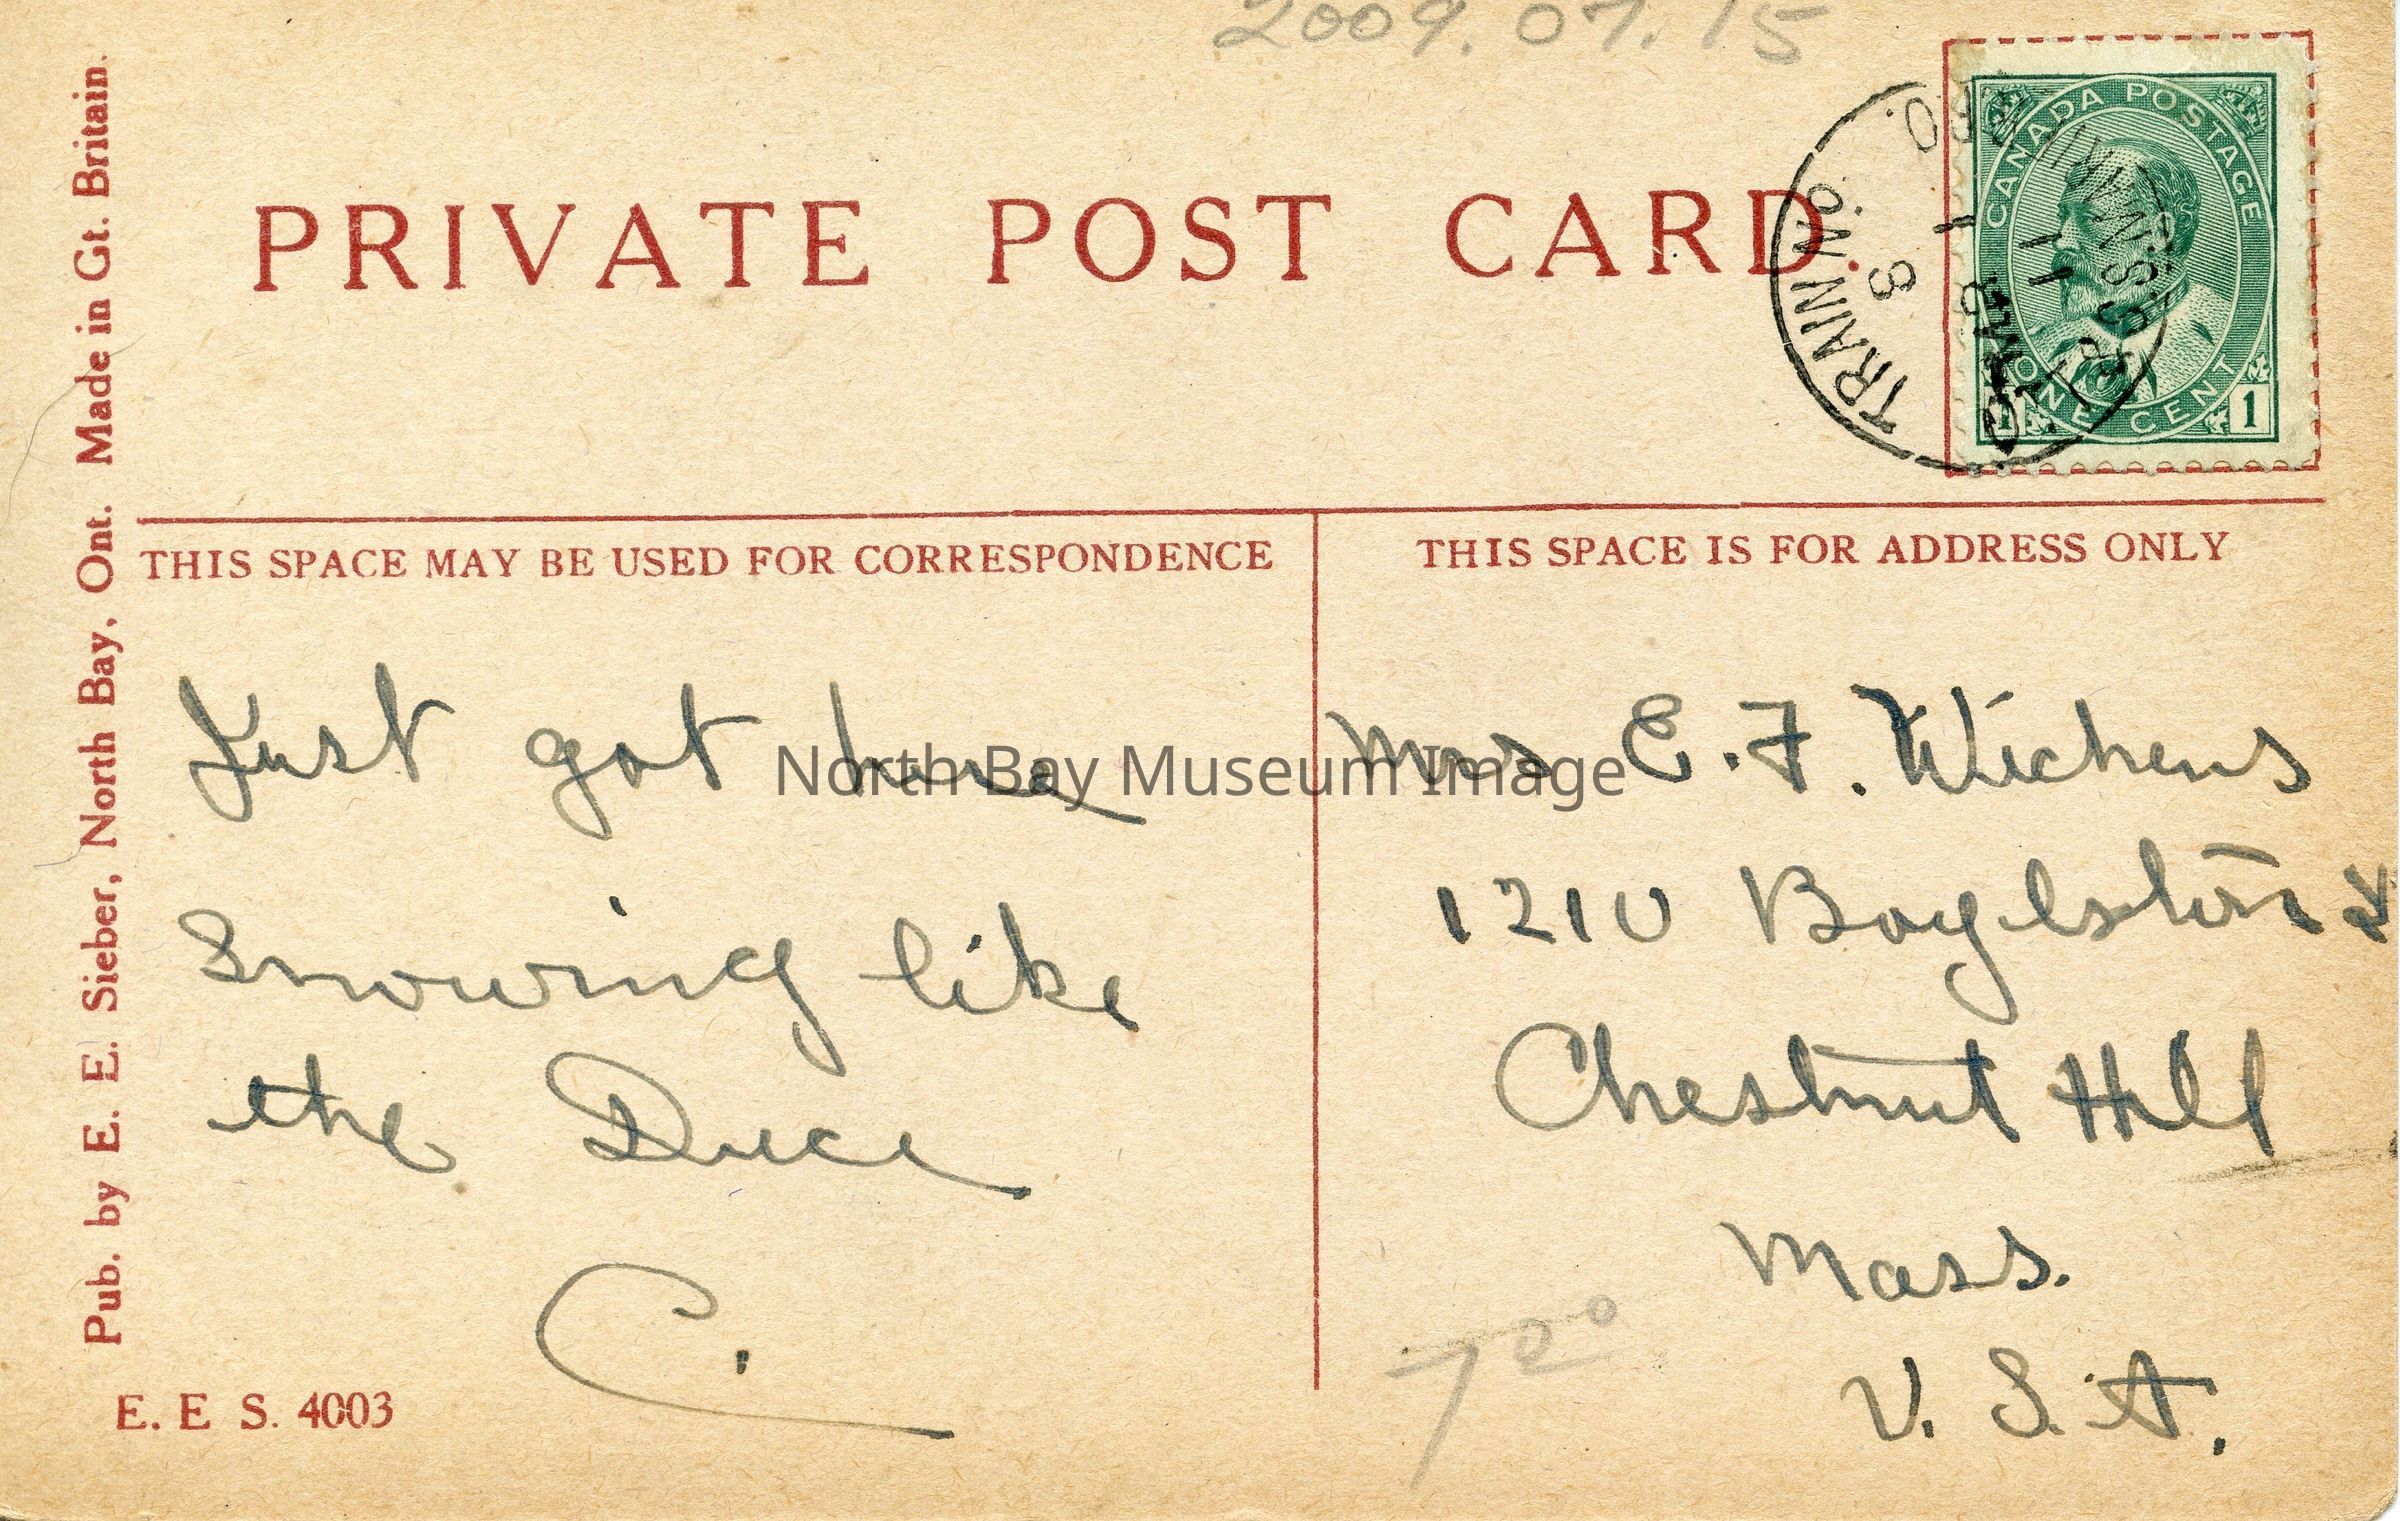 2009.07.15
PRIVATE POST CARD.
CANADA POSTAGE
ONE CENT
1
TRAIN No.
8
R.P.O.
Pub. by E. E. Sieber, North Bay, Ont. Made in Gt. Britain.
THIS SPACE MAY BE USED FOR CORRESPONDENCE
THIS SPACE IS FOR ADDRESS ONLY
Just got here
Snowing like
the Duce
C.
Mrs E. F. Wichens
1210 Boylston St
Chestnut Hill
Mass.
U. S. A.
7 00
E. E S. 4003
North Bay Museum Image